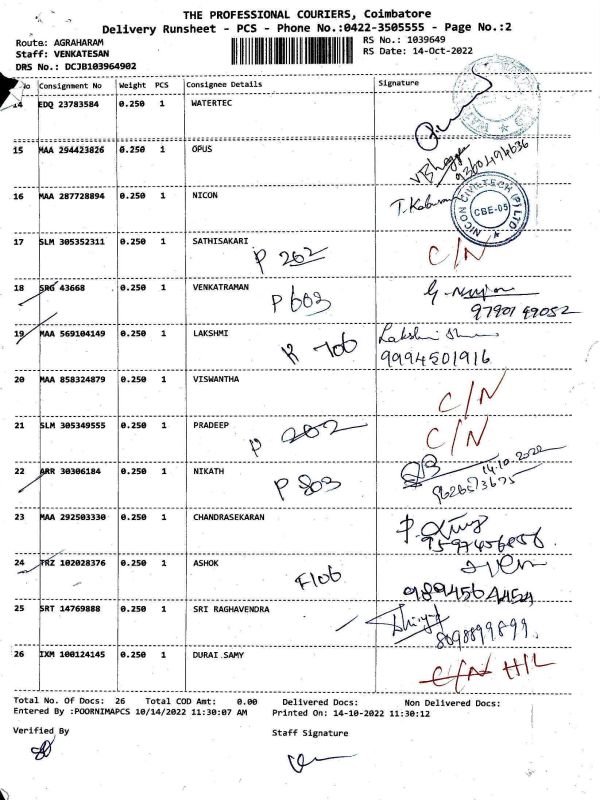 THE PROFESSIONAL COURIERS, Coimbatore
Delivery Runsheet - PCS - Phone No.:0422-3505555 - Page No.:2
Route: AGRAHARAM RS No.: 1039649
Staff: VENKATESAN RS Date: 14-Oct-2022
DRS No.: DCJB103964902
No Consignment No Weight PCS Consignee Details Signature
14 EDQ 23783584 0.250 1 WATERTEC
15 MAA 294423826 0.250 1 OPUS
16 MAA 287728894 0.250 1 NICON
NICON CIVILTECH (P) LTD
CBE-05
17 SLM 305352311 0.250 1 SATHISAKARI
P 262 C/N
18 SRG 43668 0.250 1 VENKATRAMAN
P 603
19 MAA 569104149 0.250 1 LAKSHMI
K 706 9994501916
20 MAA 858324879 0.250 1 VISWANTHA
C/N
21 SLM 305349555 0.250 1 PRADEEP
P 202 C/N
22 ARR 30306184 0.250 1 NIKATH
P 803 14.10.2022
23 MAA 292503330 0.250 1 CHANDRASEKARAN
24 TRZ 102028376 0.250 1 ASHOK
F106
25 SRT 14769888 0.250 1 SRI RAGHAVENDRA
8098899899.
26 IXM 100124145 0.250 1 DURAI SAMY
C/N H/L
Total No. Of Docs: 26 Total COD Amt: 0.00 Delivered Docs: Non Delivered Docs:
Entered By :POORNIMAPCS 10/14/2022 11:30:07 AM Printed On: 14-10-2022 11:30:12
Verified By Staff Signature